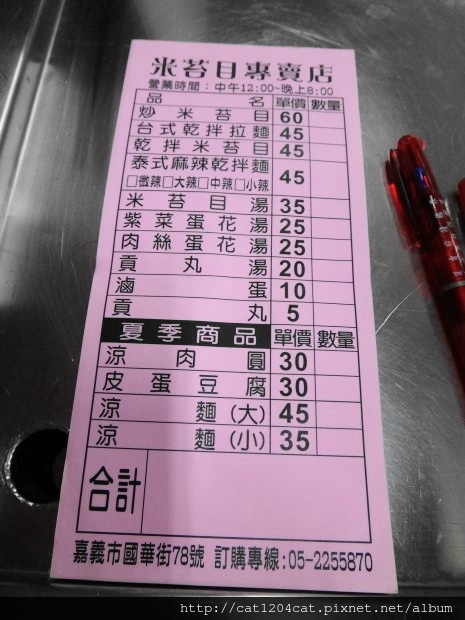 米苔目專賣店
營業時間：中午12:00~晚上8:00
品名 單價 數量
炒米苔目 60
台式乾拌拉麵 45
乾拌米苔目 45
泰式麻辣乾拌麵 45
□微辣□大辣□中辣□小辣
米苔目湯 35
紫菜蛋花湯 25
肉絲蛋花湯 25
貢丸湯 20
滷蛋 10
貢丸 5
夏季商品 單價 數量
涼肉圓 30
皮蛋豆腐 30
涼麵(大) 45
涼麵(小) 35
合計
嘉義市國華街78號 訂購專線:05-2255870
http://cat1204cat.pixnet.net/album